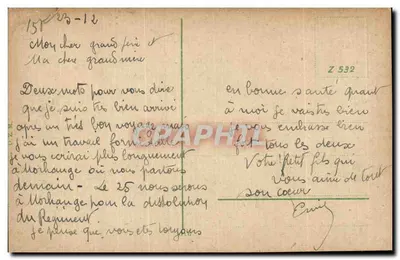 15h 23-12
Mon cher grand père et
Ma chere grand mère
Deux mots pour vous dire
que je suis tres bien arrivé
apres un trés bon voyage mais
j'ai un travail formidable
je vous ecrirai plus longuement
à Morhange où nous partons
demain - Le 25 nous serons
à Morhange pour la dissolution
du Regiment.
je pense que vous etes toujours
Z 532
en bonne santé quant
à moi je vais très bien
je vous embrasse bien
fort tous les deux
Votre petit fils qui
vous aime de tout
son cœur
Emile
CPAPHIL.COM